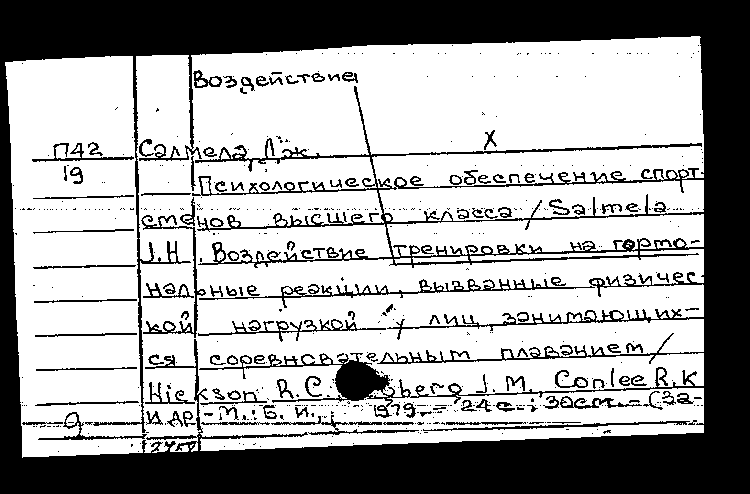 Воздействие
П42 Салмела, Дж. X
19 Психологическое обеспечение спорт-
сменов высшего класса / Salmela
J.H. Воздействие тренировки на гормо-
нальные реакции, вызванные физичес-
кой нагрузкой у лиц, занимающих-
ся соревновательным плаванием /
Hickson R.C. J.M., Conlee R.K
и др. - М.: Б. и., 1979. - 24 с.; 30см. - (За-
9